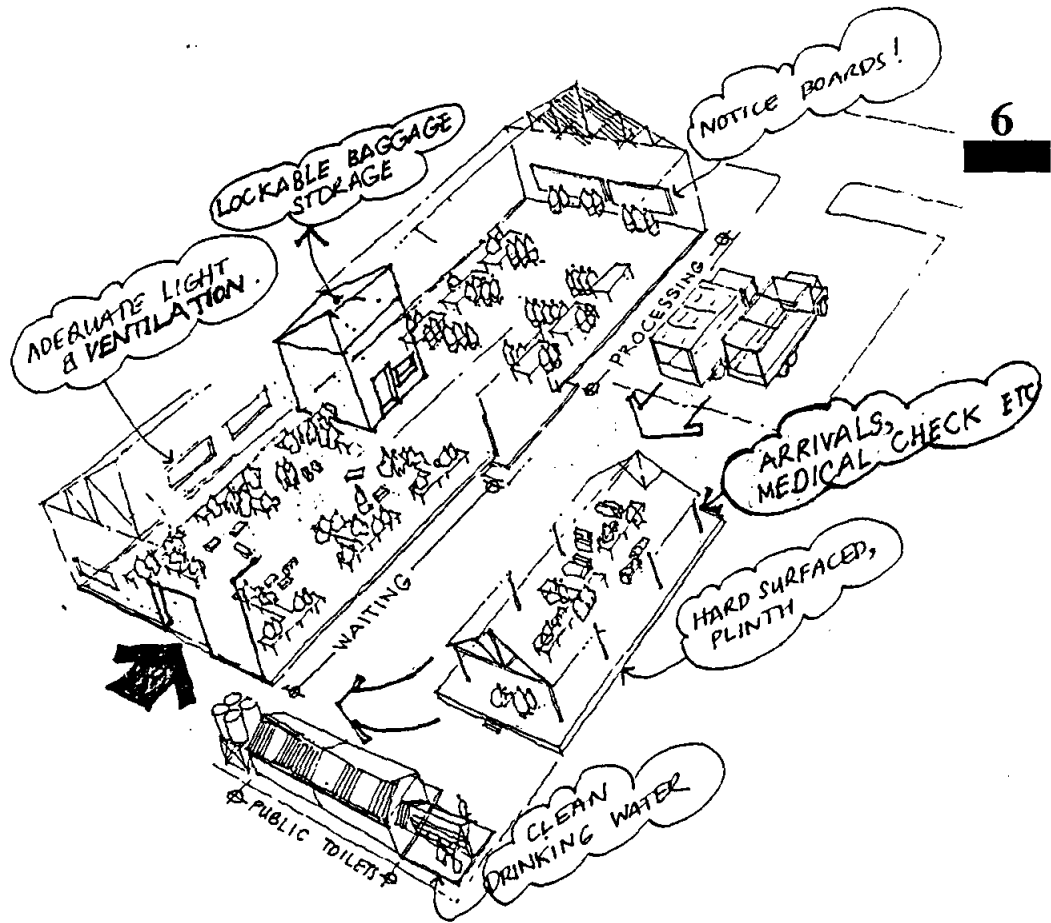 NOTICE BOARDS!
6
LOCKABLE BAGGAGE
STORAGE
ADEQUATE LIGHT
& VENTILATION.
PROCESSING
ARRIVALS,
MEDICAL CHECK ETC
HARD SURFACED,
PLINTH
WAITING
PUBLIC TOILETS
CLEAN
DRINKING WATER